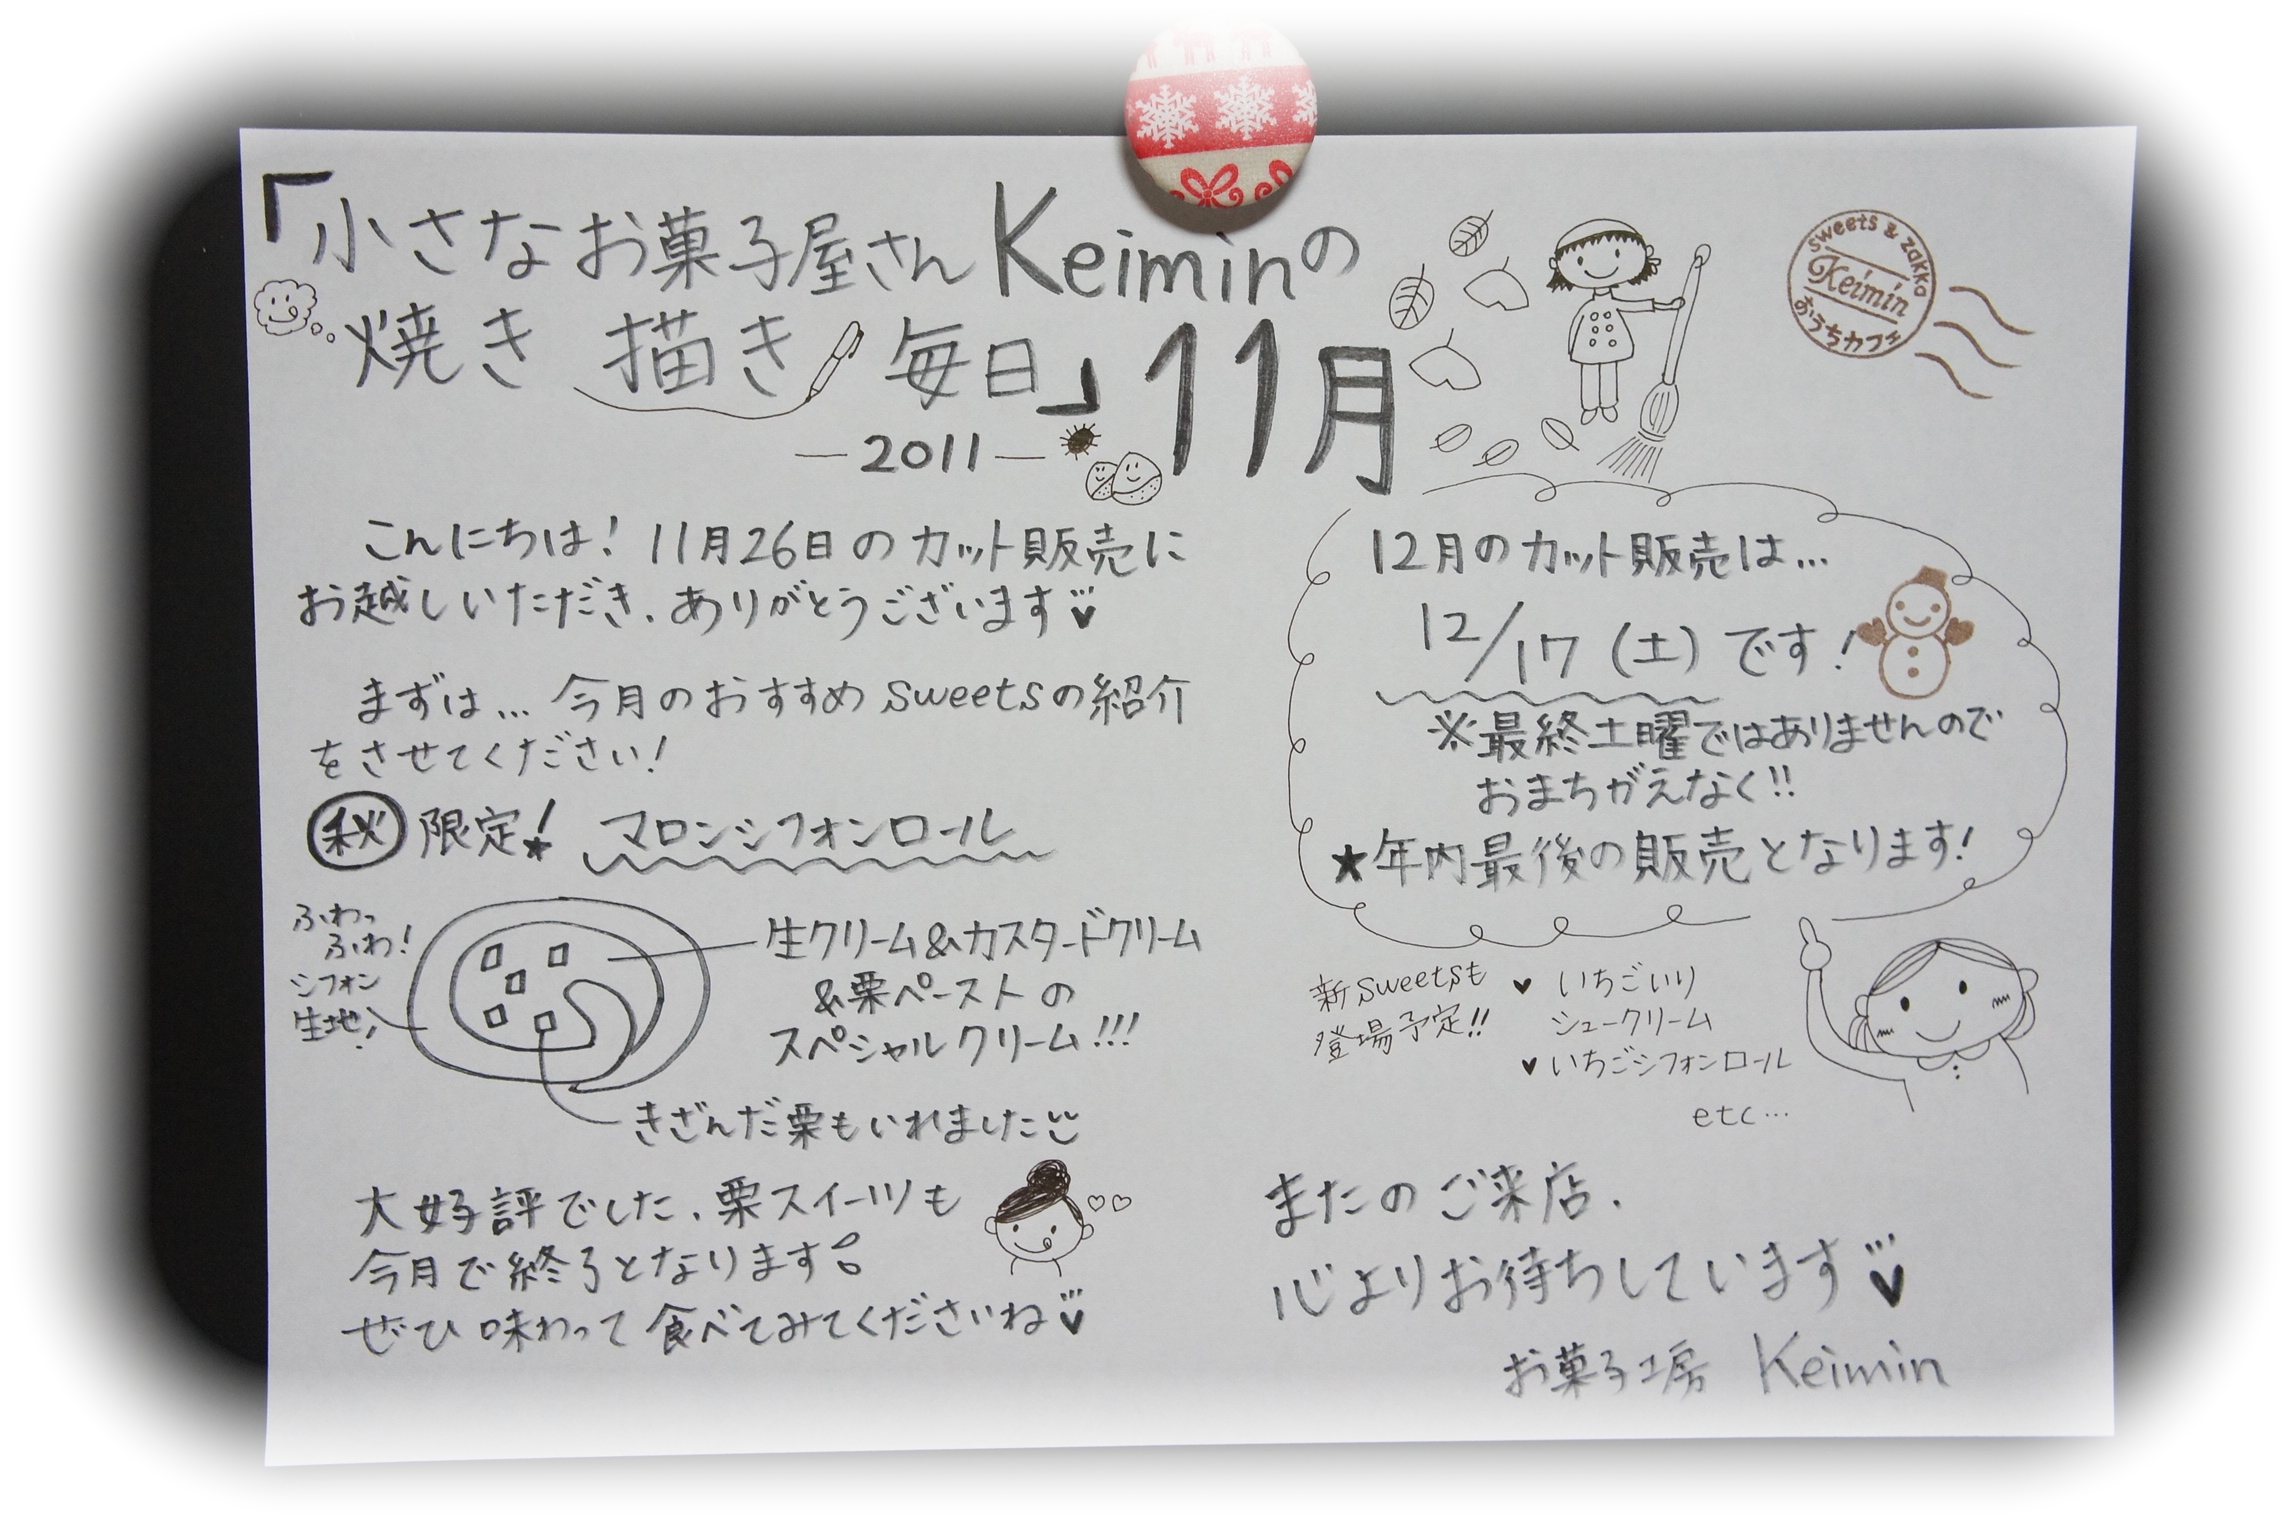 「小さなお菓子屋さんKeiminの
焼き 描き 毎日」11月
-2011-
sweets & zakka
Keimin
おうちカフェ
こんにちは！11月26日のカット販売に
お越しいただき、ありがとうございます♥
まずは…今月のおすすめsweetsの紹介
をさせてください！
秋限定！マロンシフォンロール
ふわっ
ふわ！
シフォン
生地！
生クリーム&カスタードクリーム
&栗ペーストの
スペシャルクリーム!!!
きざんだ栗もいれました
大好評でした、栗スイーツも
今月で終了となります。
ぜひ味わって食べてみてくださいね♥
12月のカット販売は…
12/17（土）です！
※最終土曜ではありませんので
おまちがえなく!!
★年内最後の販売となります！
新sweetsも
登場予定!!
♥いちごいり
シュークリーム
♥いちごシフォンロール
etc…
またのご来店、
心よりお待ちしています♥
お菓子工房 Keimin